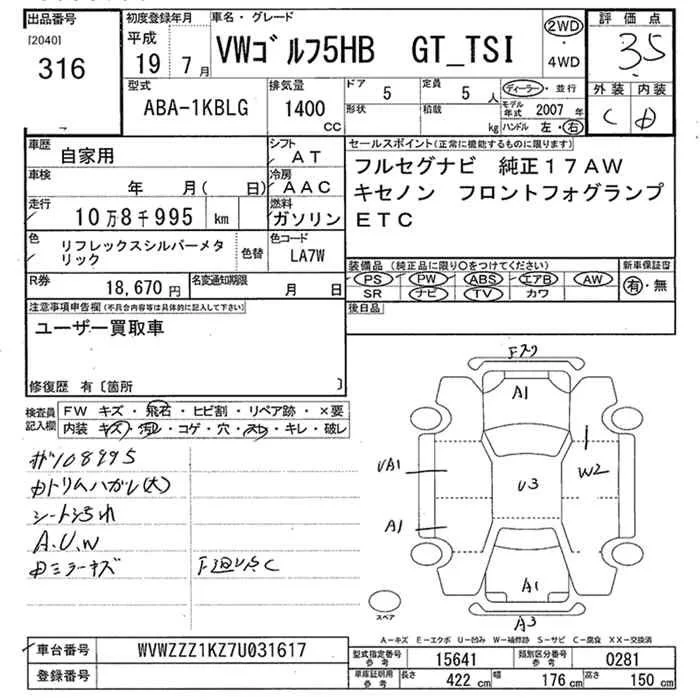 出品番号
[2040]
316
初度登録年月
平成
19 7月
車名・グレード
VWゴルフ5HB GT_TSI
2WD
・
4WD
評価点
3.5
外装 内装
C D
型式
ABA-1KBLG
排気量
1400
CC
ドア 5
定員 5 人
形状
積載 kg
ディーラー・並行
モデル年式 2007 年
ハンドル 左・右
車歴
自家用
シフト
AT
車検 年 月( 日)
冷房
AAC
走行
10万8千995 km
燃料
ガソリン
色
リフレックスシルバーメタ
リック
色替
色コード
LA7W
R券
18,670円
名変通知期限
月 日
セールスポイント(正常に機能するものに限ります)
フルセグナビ 純正17AW
キセノン フロントフォグランプ
ETC
装備品(純正品に限り○をつけてください)
新車保証書
PS PW ABS エアB AW
SR ナビ TV カワ
有・無
後日品
注意事項申告欄(不具合内容等は具体的に記入して下さい)
ユーザー買取車
修復歴 有〔箇所 〕
検査員
記入欄
FW キズ・飛石・ヒビ割・リペア跡・×要
内装 キズ・汚れ・コゲ・穴・スレ・キレ・破レ
108995
内トリムハガレ(大)
シート汚れ
A.U.W
内ミラーキズ
Fスリ
A1
UA1
U3
W2
A1
A1
A3
スペア
A-キズ E-エクボ U-凹み W-補修跡 S-サビ C-腐食 XX-交換済
車台番号
WVWZZZ1KZ7U031617
登録番号
型式指定番号
参考
15641
類別区分番号
参考
0281
車庫証明用
参考
長さ 422 cm
幅 176 cm
高さ 150 cm